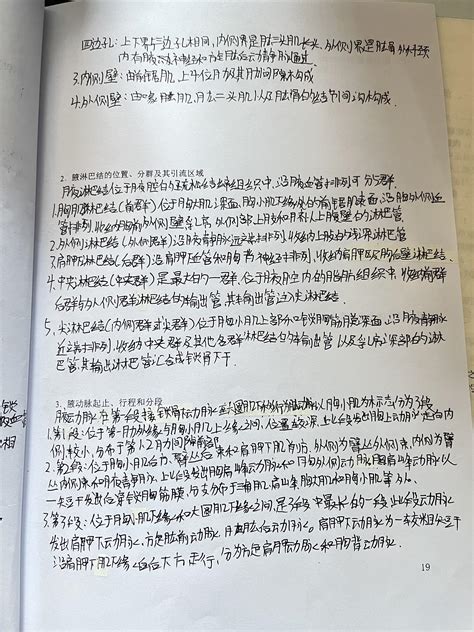 四边孔：上下界与三边孔相同，内侧界是肱三头肌长头，外侧界是肱骨外科颈
内有腋神经和旋肱后动脉通过.
3.内侧壁：由前锯肌，上4位肋及其肋间隙构成
4.外侧壁：由喙肱肌，肱二头肌以及肱骨的结节间沟构成.
2. 腋淋巴结的位置、分群及其引流区域
腋淋巴结位于腋腔的疏松结缔组织中，沿腋血管排列可分5群.
1.胸肌淋巴结(前群)位于胸大肌深面，胸小肌下缘的前锯肌表面，沿胸外侧血
管排列，收纳胸前外侧壁，脐以上腹壁的淋巴管
2.外侧淋巴结(外侧群)沿腋静脉远端排列，收纳上肢的浅深淋巴管
3.肩胛下淋巴结(后群)沿肩胛下血管和胸背神经排列，收纳肩胛区、胸后壁淋巴结.
4.中央淋巴结(中央群)是最大的一群，位于腋腔内的脂肪组织中，收纳前群
后群与外侧群淋巴结的输出管，其输出管注入尖淋巴结.
5.尖淋巴结(内侧群或尖群)位于胸小肌上部分和锁胸筋膜深面，沿腋静脉
近端排列，收纳中央群及其他各群淋巴结的输出管以及乳房深部的淋
巴管，其输出淋巴管汇合成锁骨下干.
3. 腋动脉起止、行程和分段
腋动脉在第一肋接锁骨下动脉至大圆肌下缘移行为肱动脉以胸小肌为标志分为3段
1.第1段：位于第一肋外缘与胸小肌上缘之间，位置较深，上段发出胸上动脉走行向内
侧，较小，分布于第1、2肋间隙前部
2.第2段：位于胸小肌后方，臂丛后束和肩胛下肌前方，外侧为臂丛外侧束，内侧为臂
丛内侧束和腋静脉，上段发出胸肩峰动脉和胸外侧动脉，胸肩峰动脉以
一短干发出后穿锁胸筋膜，分支分布于三角肌、肩峰、胸大肌和胸小肌等处.
3.第3段：位于胸小肌下缘和大圆肌下缘之间，是3段中最长的一段，此段动脉
发出肩胛下动脉、旋肱前动脉、旋肱后动脉。肩胛下动脉为一支较粗短干
沿肩胛下肌下缘向后下方走行，分为旋肩胛动脉和胸背动脉.
19